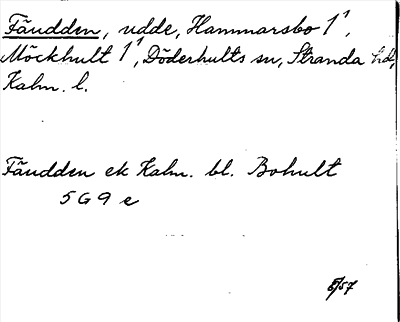 Fäudden, udde, Hammarsbo 1¹,
Möckhult 1¹, Döderhults sn, Stranda hd,
Kalm. l.
Fäudden ek Kalm. bl. Bohult
5 G 9 e